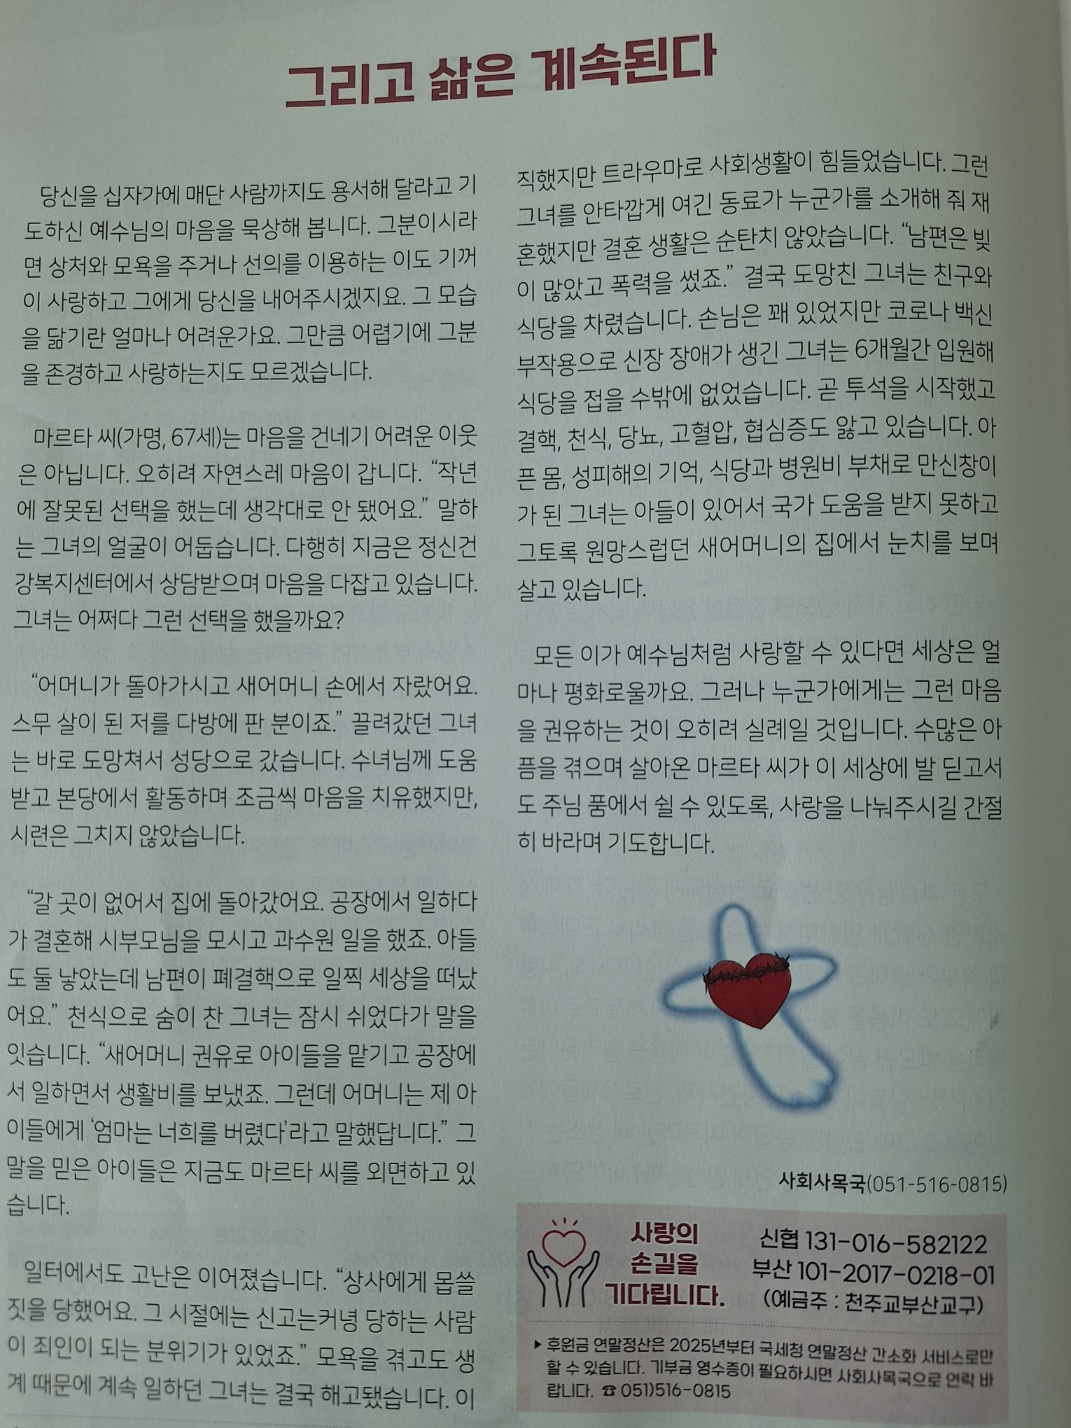 그리고 삶은 계속된다
당신을 십자가에 매단 사람까지도 용서해 달라고 기
도하신 예수님의 마음을 묵상해 봅니다. 그분이시라
면 상처와 모욕을 주거나 선의를 이용하는 이도 기꺼
이 사랑하고 그에게 당신을 내어주시겠지요. 그 모습
을 닮기란 얼마나 어려운가요. 그만큼 어렵기에 그분
을 존경하고 사랑하는지도 모르겠습니다.
마르타 씨(가명, 67세)는 마음을 건네기 어려운 이웃
은 아닙니다. 오히려 자연스레 마음이 갑니다. “작년
에 잘못된 선택을 했는데 생각대로 안 됐어요.” 말하
는 그녀의 얼굴이 어둡습니다. 다행히 지금은 정신건
강복지센터에서 상담받으며 마음을 다잡고 있습니다.
그녀는 어쩌다 그런 선택을 했을까요?
“어머니가 돌아가시고 새어머니 손에서 자랐어요.
스무 살이 된 저를 다방에 판 분이죠.” 끌려갔던 그녀
는 바로 도망쳐서 성당으로 갔습니다. 수녀님께 도움
받고 본당에서 활동하며 조금씩 마음을 치유했지만,
시련은 그치지 않았습니다.
“갈 곳이 없어서 집에 돌아갔어요. 공장에서 일하다
가 결혼해 시부모님을 모시고 과수원 일을 했죠. 아들
도 둘 낳았는데 남편이 폐결핵으로 일찍 세상을 떠났
어요.” 천식으로 숨이 찬 그녀는 잠시 쉬었다가 말을
잇습니다. “새어머니 권유로 아이들을 맡기고 공장에
서 일하면서 생활비를 보냈죠. 그런데 어머니는 제 아
이들에게 ‘엄마는 너희를 버렸다’라고 말했답니다.” 그
말을 믿은 아이들은 지금도 마르타 씨를 외면하고 있
습니다.
일터에서도 고난은 이어졌습니다. “상사에게 몹쓸
짓을 당했어요. 그 시절에는 신고는커녕 당하는 사람
이 죄인이 되는 분위기가 있었죠.” 모욕을 겪고도 생
계 때문에 계속 일하던 그녀는 결국 해고됐습니다. 이
직했지만 트라우마로 사회생활이 힘들었습니다. 그런
그녀를 안타깝게 여긴 동료가 누군가를 소개해 줘 재
혼했지만 결혼 생활은 순탄치 않았습니다. “남편은 빚
이 많았고 폭력을 썼죠.” 결국 도망친 그녀는 친구와
식당을 차렸습니다. 손님은 꽤 있었지만 코로나 백신
부작용으로 신장 장애가 생긴 그녀는 6개월간 입원해
식당을 접을 수밖에 없었습니다. 곧 투석을 시작했고
결핵, 천식, 당뇨, 고혈압, 협심증도 앓고 있습니다. 아
픈 몸, 성피해의 기억, 식당과 병원비 부채로 만신창이
가 된 그녀는 아들이 있어서 국가 도움을 받지 못하고
그토록 원망스럽던 새어머니의 집에서 눈치를 보며
살고 있습니다.
모든 이가 예수님처럼 사랑할 수 있다면 세상은 얼
마나 평화로울까요. 그러나 누군가에게는 그런 마음
을 권유하는 것이 오히려 실례일 것입니다. 수많은 아
픔을 겪으며 살아온 마르타 씨가 이 세상에 발 딛고서
도 주님 품에서 쉴 수 있도록, 사랑을 나눠주시길 간절
히 바라며 기도합니다.
사회사목국(051-516-0815)
사랑의
손길을
기다립니다.
신협 131-016-582122
부산 101-2017-0218-01
(예금주 : 천주교부산교구)
▶ 후원금 연말정산은 2025년부터 국세청 연말정산 간소화 서비스로만
할 수 있습니다. 기부금 영수증이 필요하시면 사회사목국으로 연락 바
랍니다. ☎ 051)516-0815